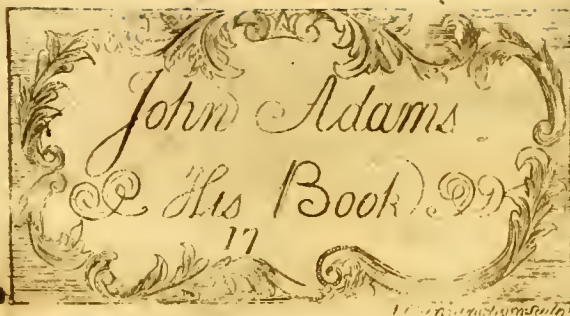 John Adams
His Book
17